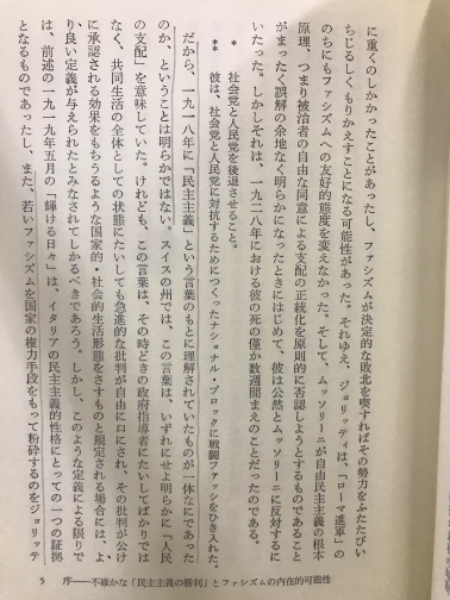 に重くのしかかったことがあったし、ファシズムが決定的な敗北を喫すればその勢力をふたたびい
ちじるしくもりかえすことになる可能性があった。それゆえ、ジョリッティは、「ローマ進軍」の
のちにもファシズムへの友好的態度を変えなかった。そして、ムッソリーニが自由民主主義の根本
原理、つまり被治者の自由な同意による支配の正統化を原則的に否認しようとするものであること
がまったく誤解の余地なく明らかになったときにはじめて、彼は公然とムッソリーニに反対するに
いたった。しかしそれは、一九二八年における彼の死の僅か数週間まえのことだったのである。
* 社会党と人民党を後退させること。
** 彼は、社会党と人民党に対抗するためにつくったナショナル・ブロックに戦闘ファッシをひき入れた。
だから、一九一八年に「民主主義」という言葉のもとに理解されていたものが一体なにであった
のか、ということは明らかではない。スイスの州では、この言葉は、いずれにせよ明らかに「人民
の支配」を意味していた。けれども、この言葉は、その時どきの政府指導者にたいしてばかりでは
なく、共同生活の全体としての状態にたいしても急進的な批判が自由に口にされ、その批判が公け
に承認される効果をもちうるような国家的・社会的生活形態をさすものと規定される場合には、よ
り良い定義が与えられたとみなされてしかるべきであろう。しかし、このような定義による限りで
は、前述の一九一九年五月の「輝ける日々」は、イタリアの民主主義的性格にとっての一つの証拠
となるものであったし、また、若いファシズムを国家の権力手段をもって粉砕するのをジョリッテ
5 序——不確かな「民主主義の勝利」とファシズムの内在的可能性